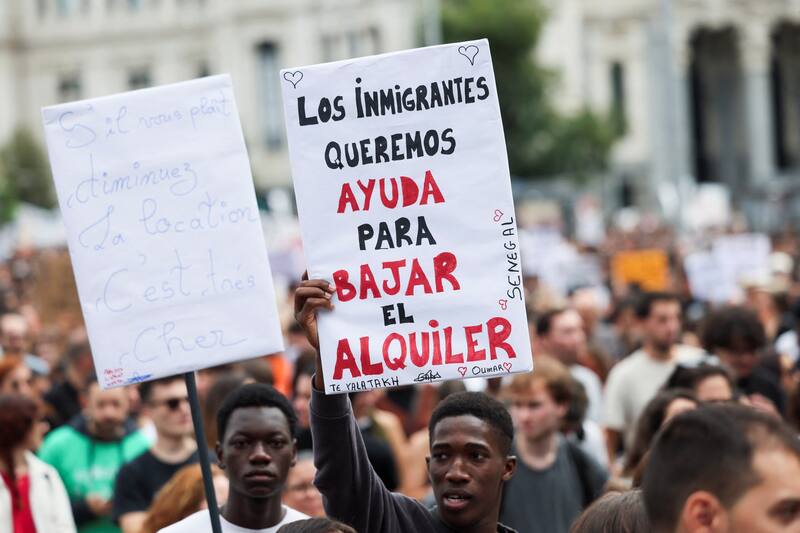 S'il vous plaît
diminuez
La location
C'est trés
Cher
LOS INMIGRANTES
QUEREMOS
AYUDA
PARA
BAJAR
EL
ALQUILER
SENEGAL
TE YALATAKH
OUMAR